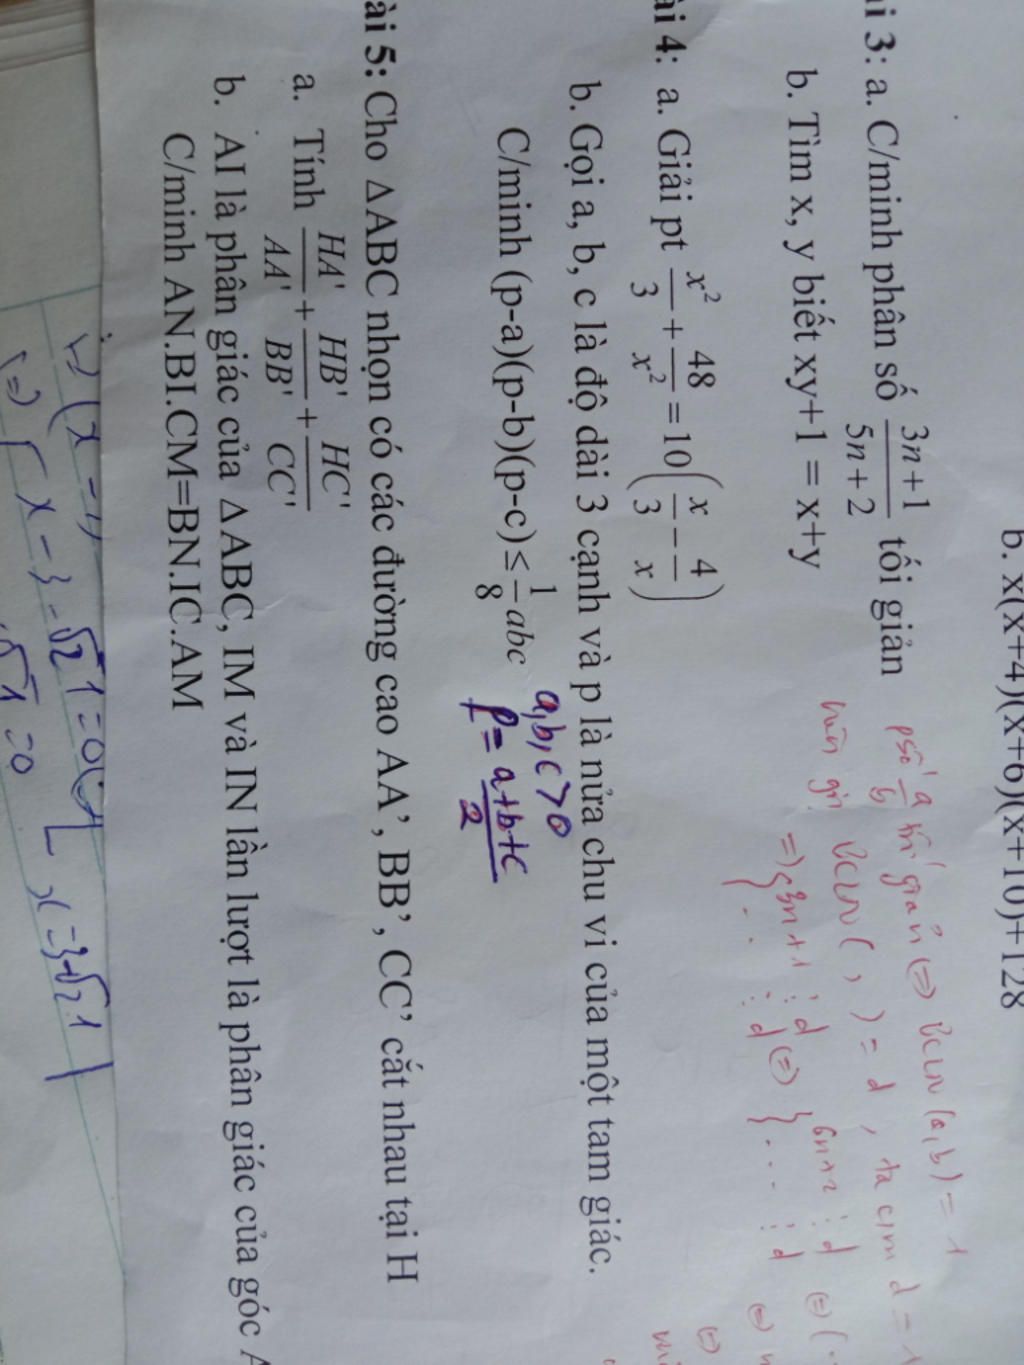 b. x(x+4)(x+6)(x+10)+128
ài 3: a. C/minh phân số \frac{3n+1}{5n+2} tối giản
psố \frac{a}{b} tối giản (=) ƯCLN (a,b) = 1
ƯCLN ( , ) = d , ta c/m d = 1
=) { 3n+1 ⋮ d (=) } ... ⋮ d
b. Tìm x, y biết xy+1 = x+y
ài 4: a. Giải pt \frac{x^2}{3} + \frac{48}{x^2} = 10\left(\frac{x}{3} - \frac{4}{x}\right)
b. Gọi a, b, c là độ dài 3 cạnh và p là nửa chu vi của một tam giác.
C/minh (p-a)(p-b)(p-c) ≤ \frac{1}{8}abc
a,b,c > 0
p = \frac{a+b+c}{2}
ài 5: Cho ΔABC nhọn có các đường cao AA’, BB’, CC’ cắt nhau tại H
a. Tính \frac{HA'}{AA'} + \frac{HB'}{BB'} + \frac{HC'}{CC'}
b. AI là phân giác của ΔABC, IM và IN lần lượt là phân giác của góc A
C/minh AN.BI.CM=BN.IC.AM